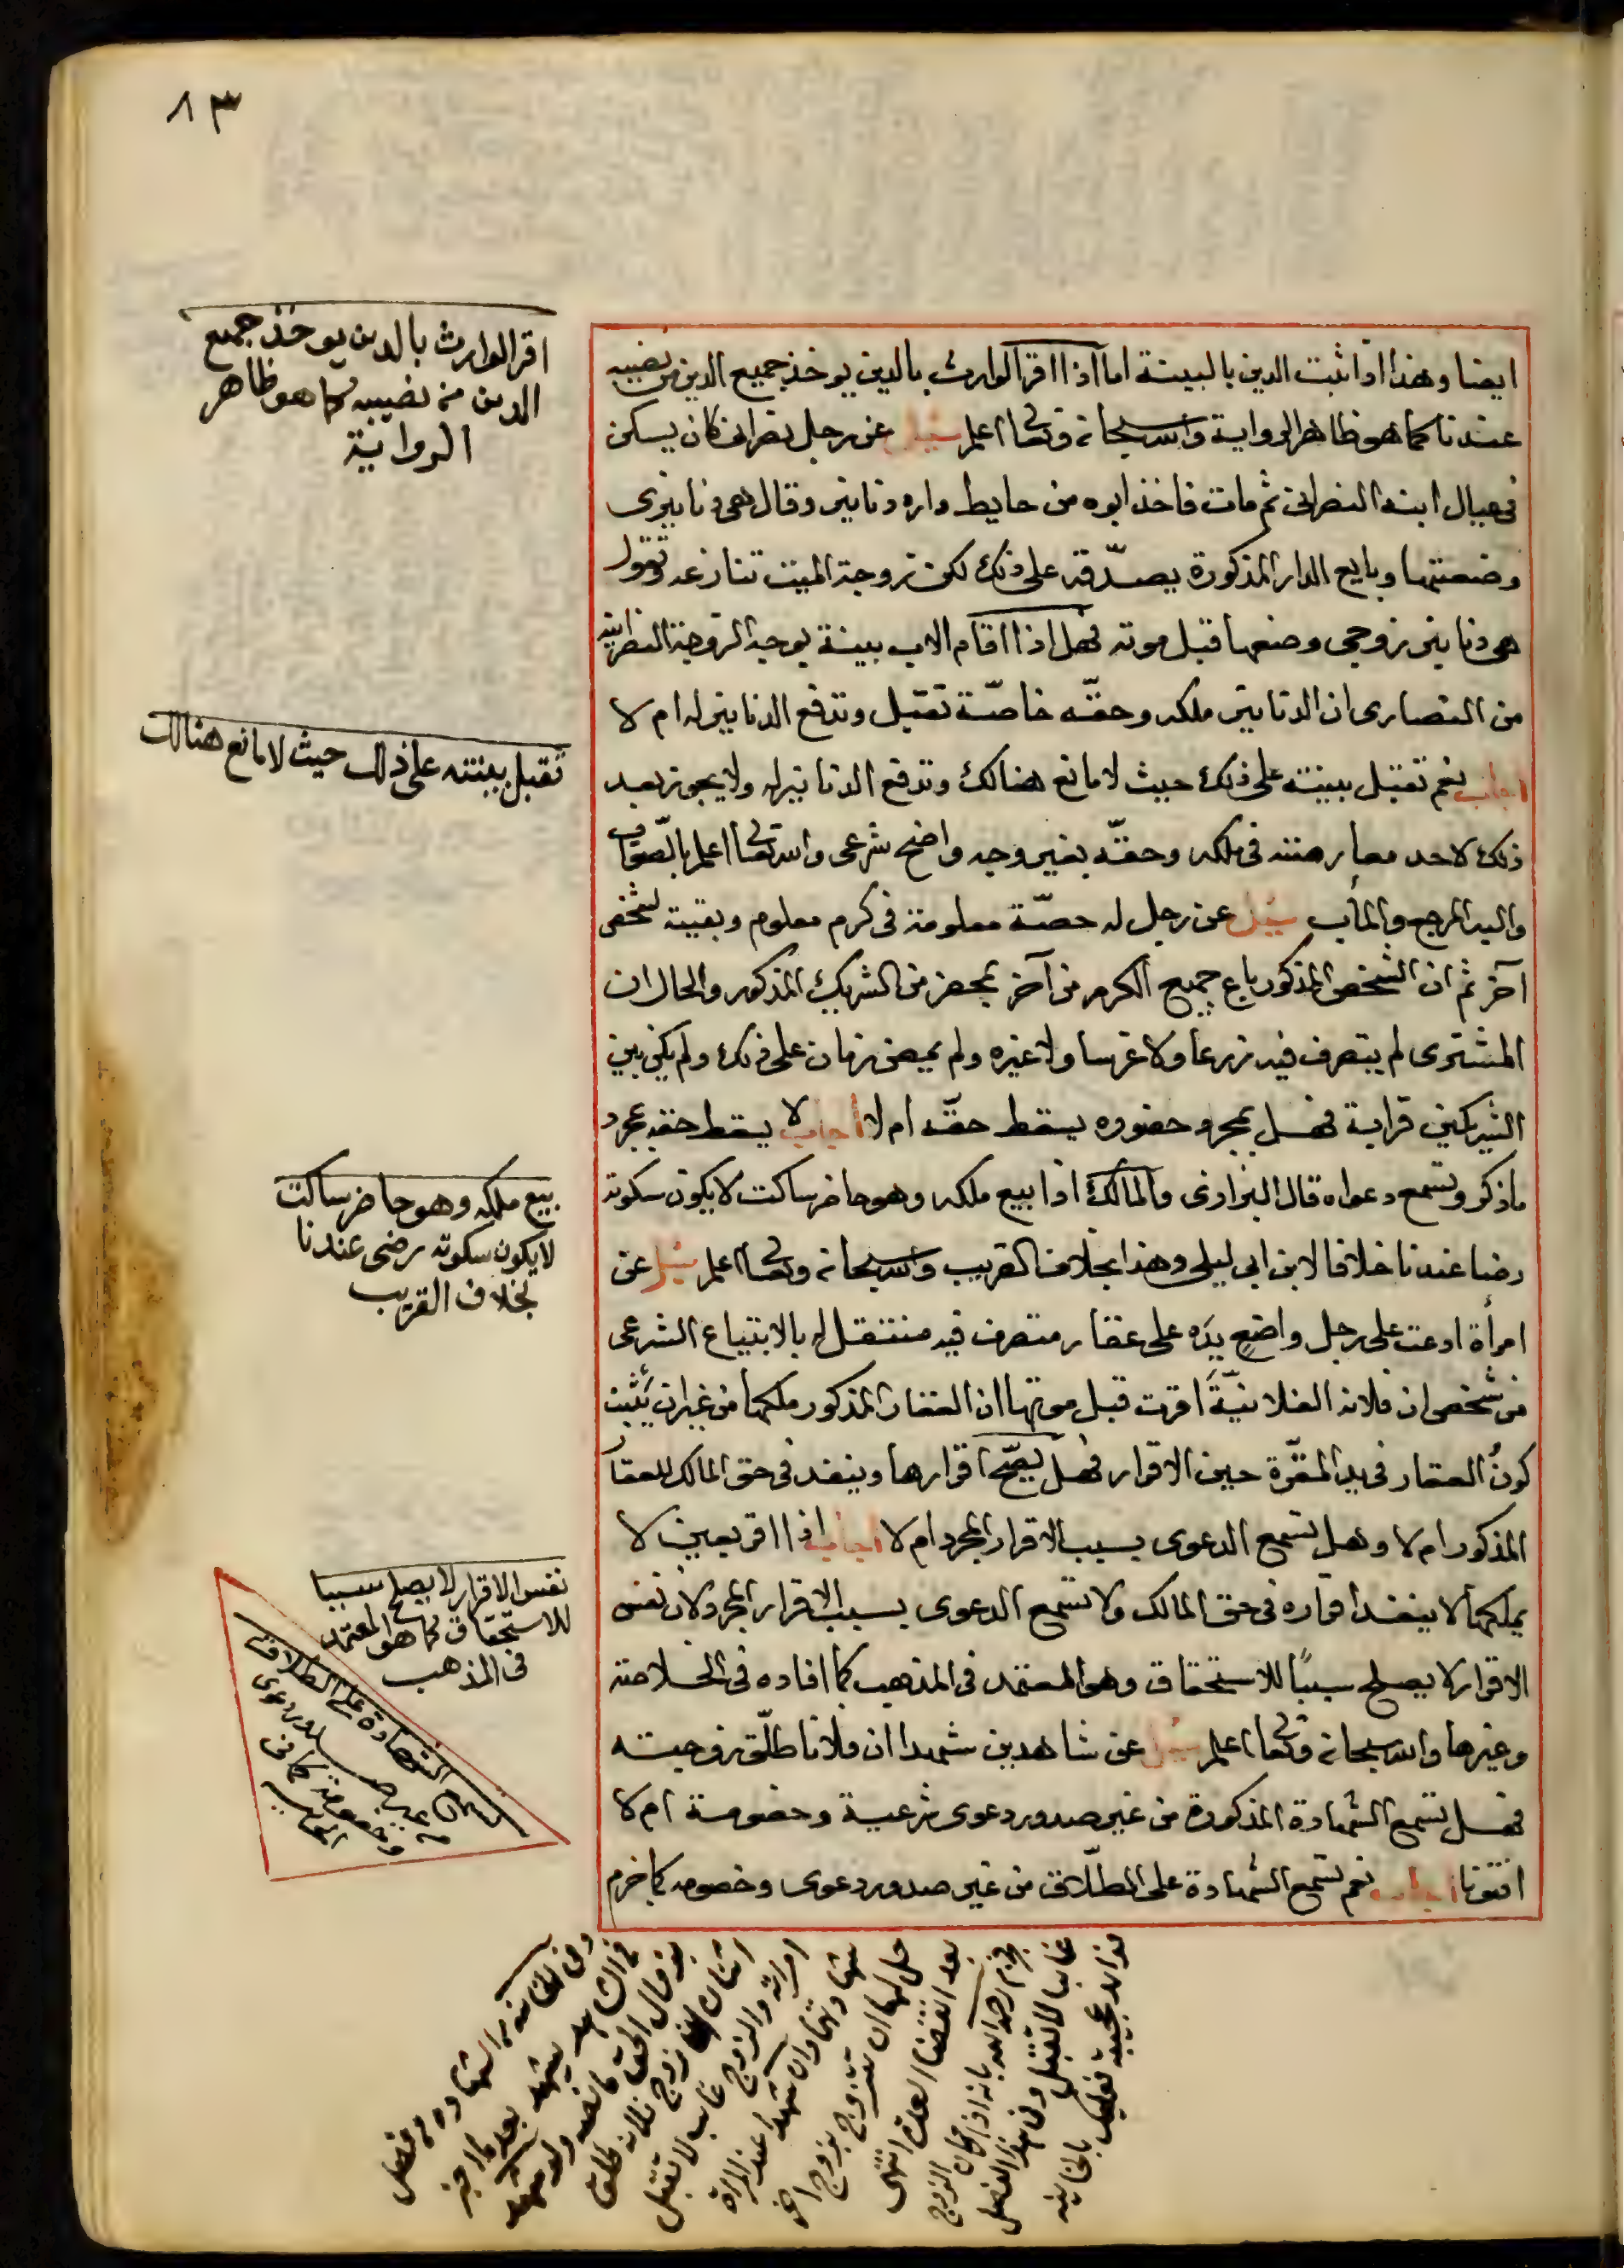 ٨٣
ايضا وهذا اذا ثبت الدين بالبينة اما اذا اقر الوارث بالدين يوخذ جميع الدين من نصيبه
عندنا كما هو ظاهر الرواية والله سبحانه وتعالى اعلم سئل عن رجل نصراني كان يسكن
في عيال ابنه النصراني ثم مات فاخذ ابوه من حايط داره دنانير وقال هي دنانيري
وضعتها وبايع الدار المذكورة يصدّقه على ذلك لكن زوجة الميت تنازعه وتقول
هي دنانير زوجي وضعها قبل موته فهل اذا اقام الاب بينة بوجه الزوجة النصرانية
من النصارى ان الدنانير ملكه وحقّه خاصّة تقبل وتدفع الدنانير له ام لا
اجاب نعم تقبل بينته على ذلك حيث لا مانع هنالك وتدفع الدنانير له ولا يجوز بعد
ذلك لاحد معارضته في ملكه وحقّه بغير وجه واضح شرعي والله تعالى اعلم بالصّواب
واليه المرجع والمأب سئل عن رجل له حصّة معلومة في كرم معلوم وبقيته لشخص
آخر ثم ان الشخص المذكور باع جميع الكرم من آخر بمحضر من الشريك المذكور والحال ان
المشترى لم يتصرف فيه زرعا ولا غرسا ولا غيره ولم يمض زمان على ذلك ولم يكن بين
الشريكين قرابة فهل بمجرد حضوره يسقط حقّه ام لا أجاب لا يسقط حقه بمجرد
ما ذكر وتسمع دعواه قال البزازى والمالك اذا بيع ملكه وهو حاضر ساكت لا يكون سكوته
رضا عندنا خلافا لابن ابي ليلى وهذا بخلاف القريب والله سبحانه وتعالى اعلم سئل عن
امرأة ادعت على رجل واضع يده على عقار متصرف فيه منتقل له بالابتياع الشرعي
من شخص ان فلانه الفلانيّة اقرت قبل موتها ان العقار المذكور ملكها من غير ان يثبت
كون العقار في يد المقرّة حين الاقرار فهل يصّح اقرارها وينفذ في حق المالك للعقار
المذكور ام لا وهل تسمع الدعوى بسبب الاقرار المجرد ام لا أجاب اذا اقر بعين لا
يملكها لا ينفذ اقراره في حق المالك ولا تسمع الدعوى بسبب الاقرار المجرد لان نفس
الاقرار لا يصلح سببًا للاستحقاق وهو المعتمد في المذهب كما افاده في الخلاصة
وغيرها والله سبحانه وتعالى اعلم سئل عن شاهدين شهدا ان فلانا طلّق زوجته
فهل تسمع الشهادة المذكورة من غير صدور دعوى شرعية وخصومة ام لا
افتونا أجاب نعم تسمع الشهادة على الطلّاق من غير صدور دعوى وخصومه كما خرم
اقر الوارث بالدين يوخذ جميع
الدين من نصيبه كما هو ظاهر
الرواية
تقبل بينته على ذلك حيث لا مانع هنالك
بيع ملكه وهو حاضر ساكت
لا يكون سكوته رضى عندنا
بخلاف القريب
نفس الاقرار لا يصلح سببا
للاستحقاق كما هو المعتمد
في المذهب
تسمع الشهادة على الطلاق
من غير صدور دعوى
وخصومة كما في
وفي الخانيه من الشهاده في فصل
في الشاهد يشهد بعد ما اخبر
بزوال الحق ما نصه ولو شهد
اثنان ان زوج فلانه طلق
امراته والزوج غايب لا تقبل
شهادتهما وان شهدا عند المراة
حل لها ان تتزوج بزوج اخر
بعد انقضا العدة انتهى
رحمه الله بانه اذا كان الزوج
غايبا لا تقبل وفي هذا الفصل
فوايد عجيبه فعليك بالخانيه